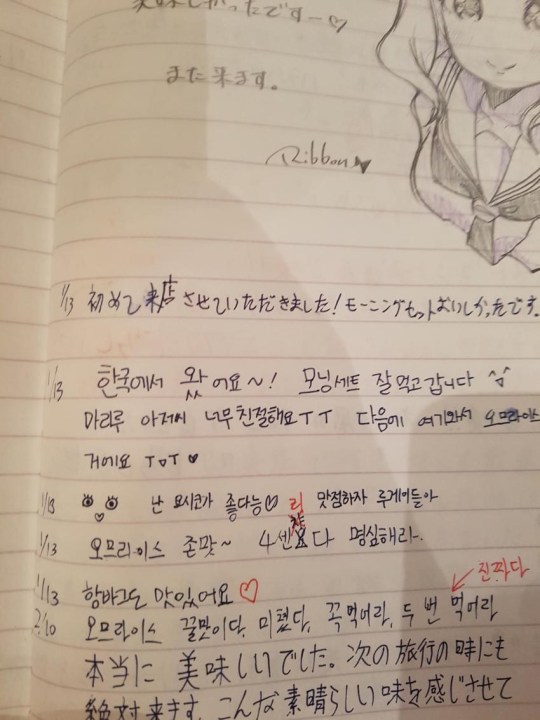 美味しかったですー♡
また来ます。
Ribbon♥
1/13 初めて来店させていただきました！モーニングセットおいしかったです。
1/13 한국에서 왔어요~! 모닝세트 잘먹고갑니다 ^^
마리루 아저씨 너무친절해요ㅜㅜ 다음에 여기와서 오므라이스
거에요 ㅜㅜ ♥
1/13 난 요시코가 좋다능♡ 리 맛점하자 루게이들아
1/13 오므라이스 존맛~ 4센 다 명심해라.
진짜다
1/13 함바그도 맛있어요♡
2/10 오므라이스 꿀맛이다, 미쳤다, 꼭먹어라, 두 번 먹어라
本当に 美味しいでした。次の旅行の時にも
絶対来ます。こんな素晴らしい味を感じさせて